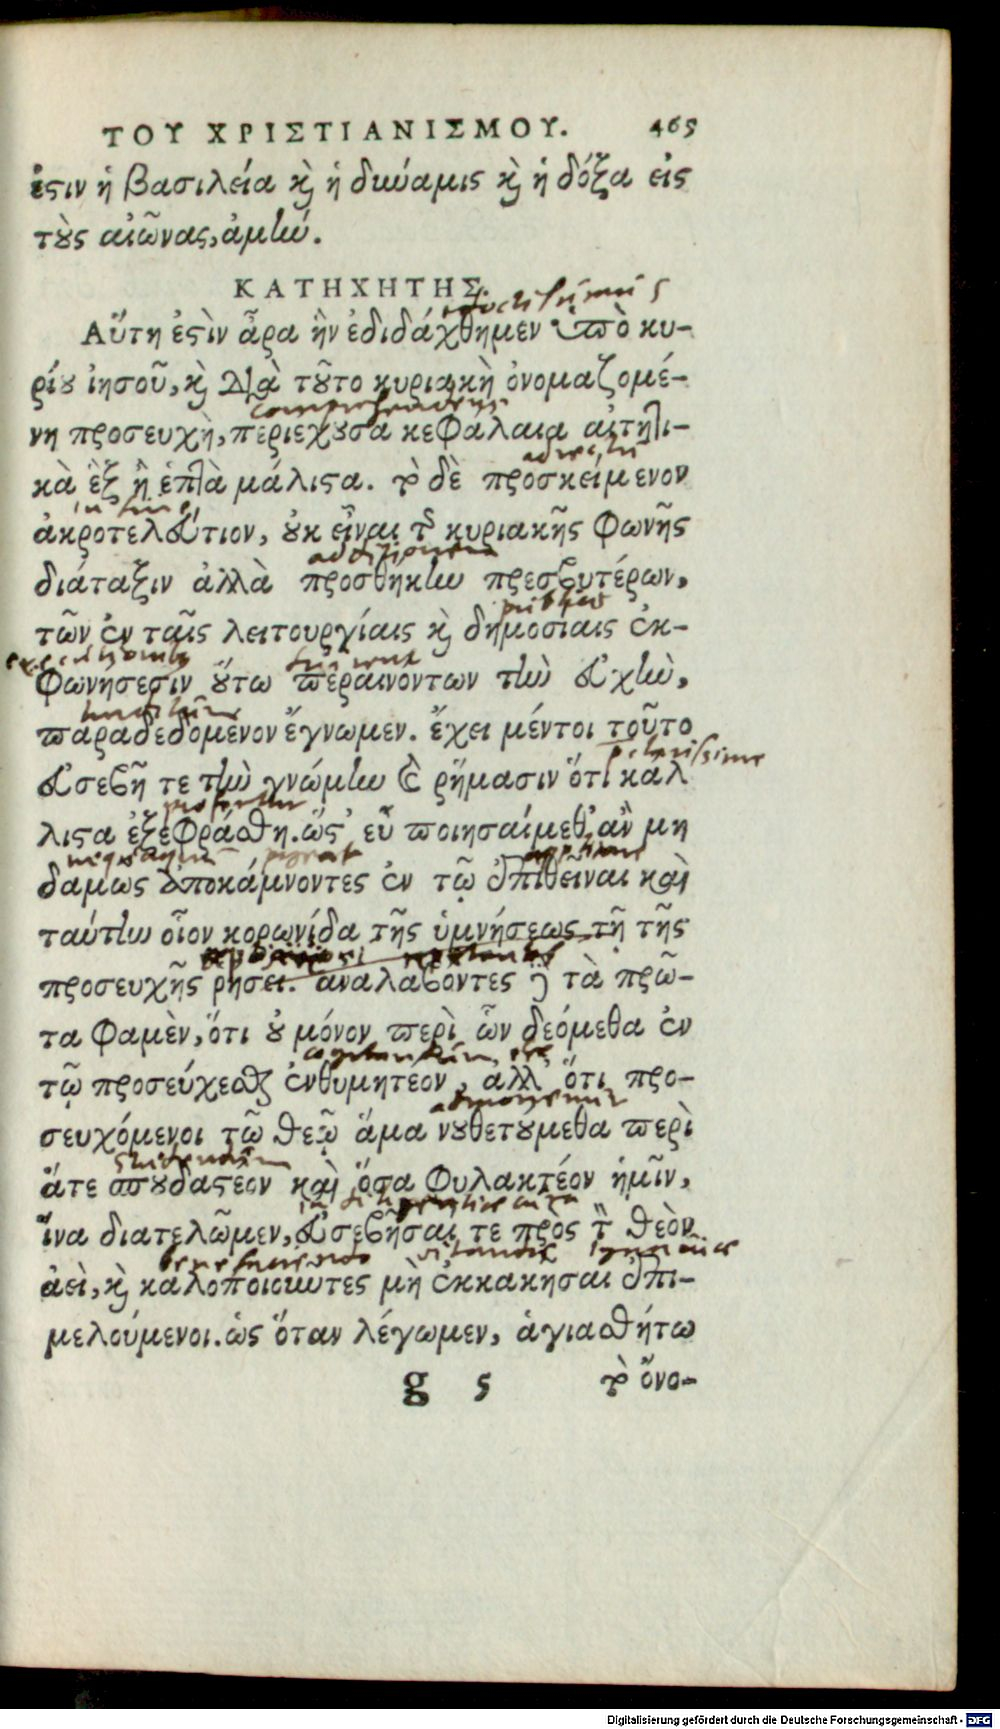 ΤΟΥ ΧΡΙΣΤΙΑΝΙΣΜΟΥ. 465
ἐστιν ἡ βασιλεία καὶ ἡ δύναμις καὶ ἡ δόξα εἰς
τοὺς αἰῶνας, ἀμήν.
ΚΑΤΗΧΗΤΗΣ.
Αὕτη ἐστὶν ἆρα ἣν ἐδιδάχθημεν ὑπὸ κυ-
ρίου ἰησοῦ, καὶ διὰ τοῦτο κυριακὴ ὀνομαζομέ-
comprehendens
νη προσευχὴ, περιέχουσα κεφάλαια αἰτητι-
κὰ ἓξ ἢ ἑπτὰ μάλιστα. τὸ δὲ προσκείμενον
ἀκροτελεύτιον, οὐκ εἶναι τῆς κυριακῆς φωνῆς
additionem
διάταξιν ἀλλὰ προσθήκην πρεσβυτέρων,
publicis
τῶν ἐν ταῖς λειτουργίαις καὶ δημοσίαις ἐκ-
finient
φωνήσεσιν οὕτω περαινόντων τὴν εὐχὴν,
παραδεδομένον ἔγνωμεν. ἔχει μέντοι τοῦτο
εὐσεβῆ τε τὴν γνώμην καὶ ῥήμασιν ὅτι κάλ
λιστα ἐξεφράσθη. ὥστ' εὖ ποιησαίμεθ' ἂν μη
δαμῶς ἀποκάμνοντες ἐν τῷ ἐπιθεῖναι καὶ
ταύτην οἷον κορωνίδα τῆς ὑμνήσεως τῇ τῆς
προσευχῆς ῥήσει. ἀναλαβόντες δὲ τὰ πρῶ-
τα φαμὲν, ὅτι οὐ μόνον περὶ ὧν δεόμεθα ἐν
τῷ προσεύχεσθαι ἐνθυμητέον, ἀλλ' ὅτι προ-
admonemur
σευχόμενοι τῷ θεῷ ἅμα νουθετούμεθα περὶ
ἅτε σπουδαστέον καὶ ὅσα φυλακτέον ἡμῖν,
ἵνα διατελῶμεν, εὐσεβῆσαι τε πρὸς τὸν θεὸν
benefaciendo
ἀεὶ, καὶ καλοποιοῦντες μὴ ἐκκακῆσαι ἐπι-
μελούμενοι. ὡς ὅταν λέγωμεν, ἁγιασθήτω
g 5 τὸ ὄνο-
Digitalisierung gefördert durch die Deutsche Forschungsgemeinschaft - DFG